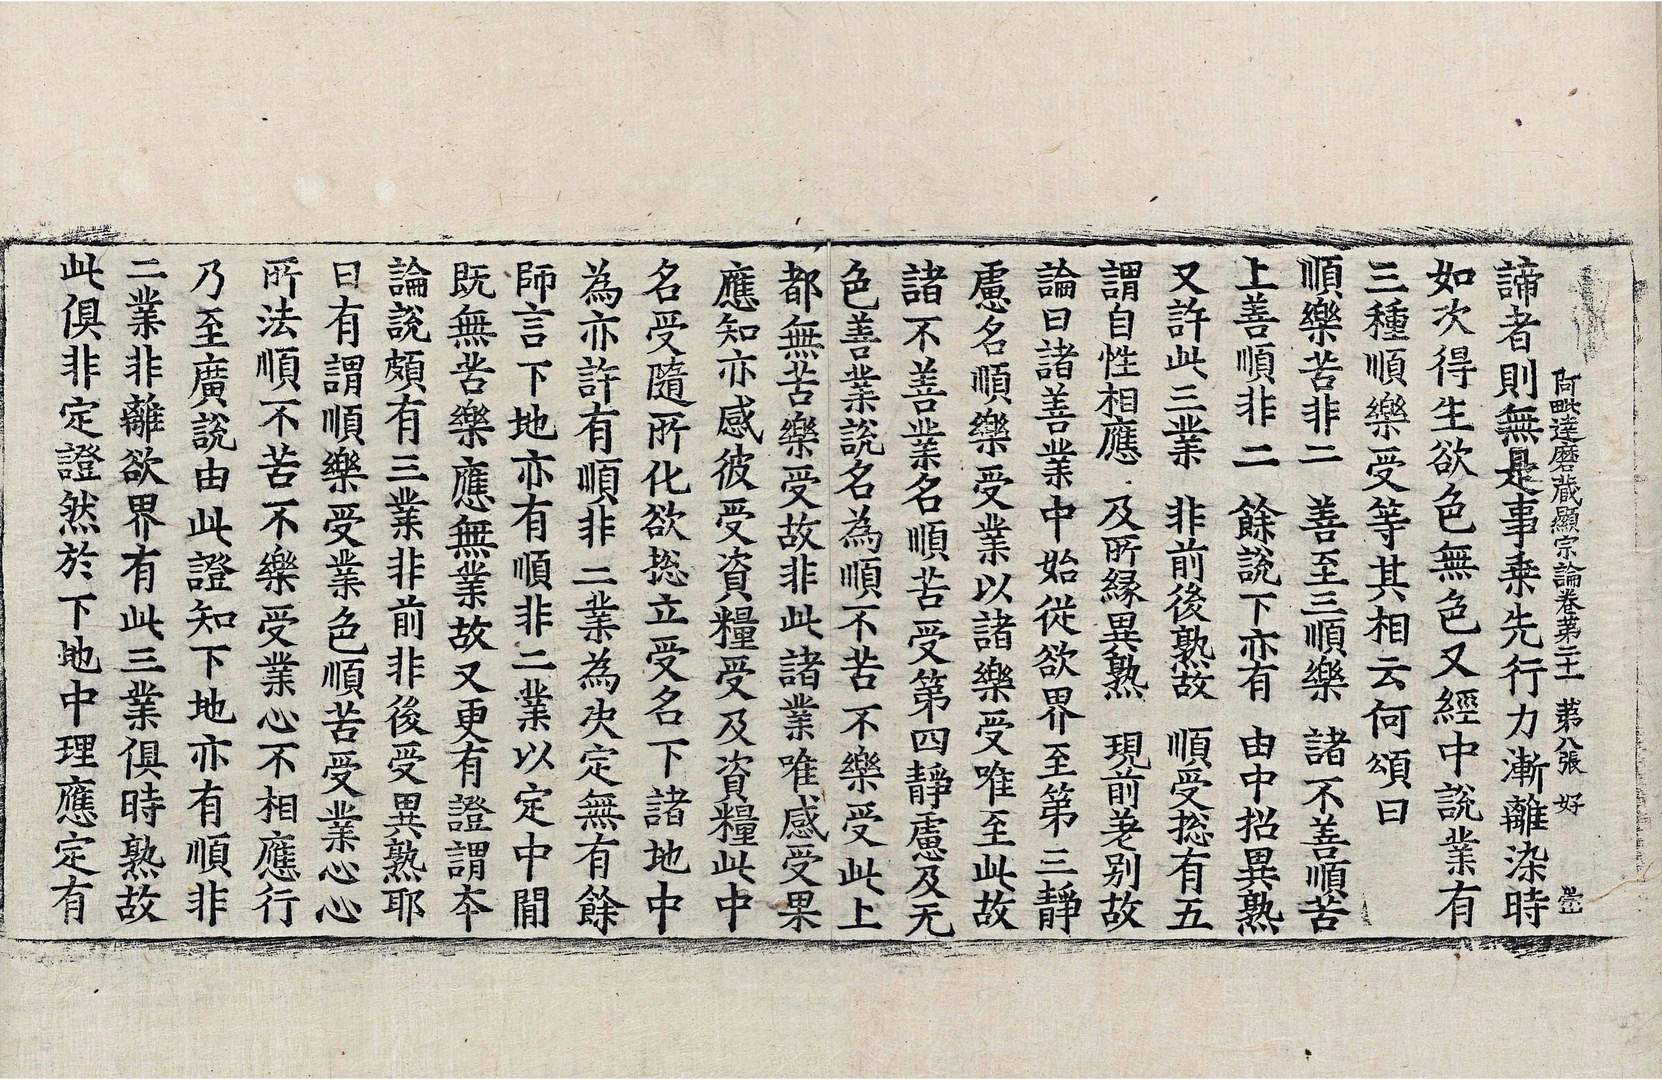 阿毗達磨藏顯宗論卷第二十一 第八張 好
諦者則無是事乗先行力漸離染時
如次得生欲色無色又經中說業有
三種順樂受等其相云何頌曰
順樂苦非二 善至三順樂 諸不善順苦
上善順非二 餘說下亦有 由中招異熟
又許此三業 非前後熟故 順受捴有五
謂自性相應 及所縁異熟 現前差别故
論曰諸善業中始從欲界至第三靜
慮名順樂受業以諸樂受唯至此故
諸不善業名順苦受第四靜慮及无
色善業說名為順不苦不樂受此上
都無苦樂受故非此諸業唯感受果
應知亦感彼受資糧受及資糧此中
名受隨所化欲捴立受名下諸地中
為亦許有順非二業為决定無有餘
師言下地亦有順非二業以定中閒
既無苦樂應無業故又更有證謂夲
論說頗有三業非前非後受異熟耶
曰有謂順樂受業色順苦受業心心
所法順不苦不樂受業心不相應行
乃至廣說由此證知下地亦有順非
二業非離欲界有此三業俱時熟故
此俱非定證然於下地中理應定有